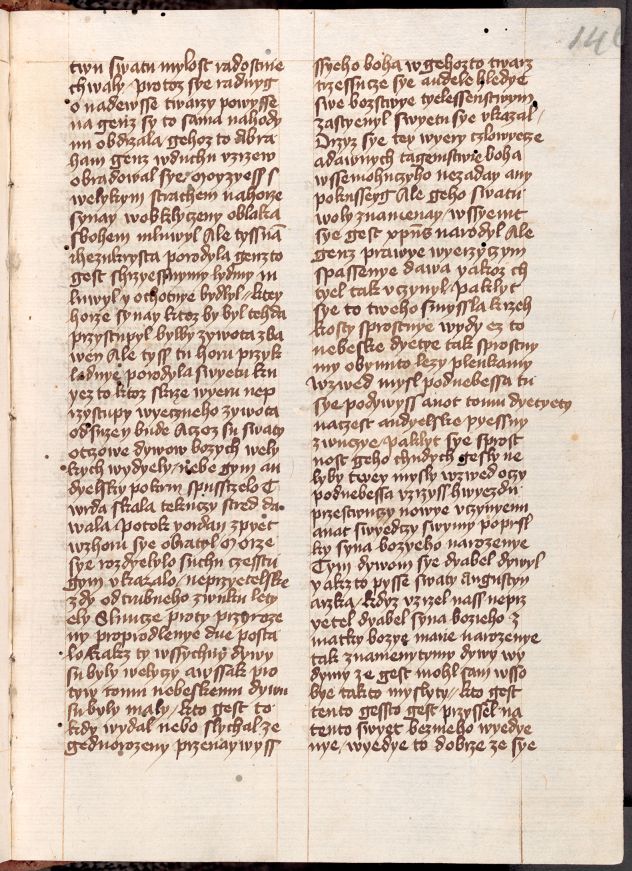 140
twu swatu mylost radostnie
chwaly / protoz sye raduyg
o nadewsse twarzy powysse
na genz sy to sama nahody
mi obdrzala gehoz to abra
ham genz wduchu vzrzew
obradowal sye / Moyzyess s
welykym strachem nahorze
synay wobklyczeny oblaka
sbohem mluwyl Ale tyss nā
ihezukrysta porodyla genzto
gest shrzyessnymy lydmy m
luwyl y ochotnye bydlyl / ktey
horze synay ktoz by byl tehda
przystupyl bylby zywota zba
wen Ale tyss tu horu przyk
ladnye porodyla swyetu ku
yez to ktoz skrze wyeru nep
rzystupy wyeczneho zywota
odsuzey bude Aczoz su swaty
otczowe dywow bozych wely
kych wydyely / nebe gym an
dyelsky pokrm spussczelo T
wrda skala tekuczy strzed da
wala / potok yordan zpyet
wzhoru sye obratyl Morze
sye rozdyelylo suchu czesstu
gym vkazalo / neprzyetelske
zdy odtrubneho zwuku lety
ely Slunce proty przyroze
ny propiodlenye due posta
lo kakz ty wssychny dywy
su byly welyczy awssak pro
tyw tomu nebeskemu dywu
su byly maly / kto gest to
kdy wydal nebo slychal ze
gednorozeny przenaywyss
ssyeho boha w gehozto twarz
trzessucze sye andele hledye
swe bozstwye tyelessenstwym
zastyenyl swyetu sye vkazal /
Drzyz sye tey wyery czlowyecze
adawnych tagemstwie boha
wssemohuczyho nezaday any
pokusseyg Ale geho swatu
woly znamenay / wssyemt
sye gest xp̄us narodyl Ale
genz prawye wyerzyczym
spassenye dawa yakoz ch
tyel tak vczynyl / paklyt
sye to tweho smyssla krzeh
kosty sprostnye wydy ez to
nebeske dyetye tak sprostny
my obynuto lezy plenkamy
wzwed mysl podnebessa tu
sye podywyss anot tomu dyetyety
naczest andyelske pyessny
zwuczye / paklyt sye sprost
nost geho chudych gesly ne
lyby twey mysly wzwed oczy
podnebessa vzrzyss hwyezdu
przestwuczy nowye vczynenu
anat swyedczy swymy poprsl
ky syna bozyeho narozenye
Tym dywom sye dyabel dywyl
yakzto pysse swaty Augustyn
arzka / kdyz vzrzel nass neprz
yetel dyabel syna bozieho z
matky bozye marie narozenye
tak znamenytymy dywy wy
dyuny ze gest mohl sam wsso
bye takto myslyty / kto gest
tento gessto gest przyssel na
tento swyet bezmeho wyedye
nye / wyedye to dobrze ze sye